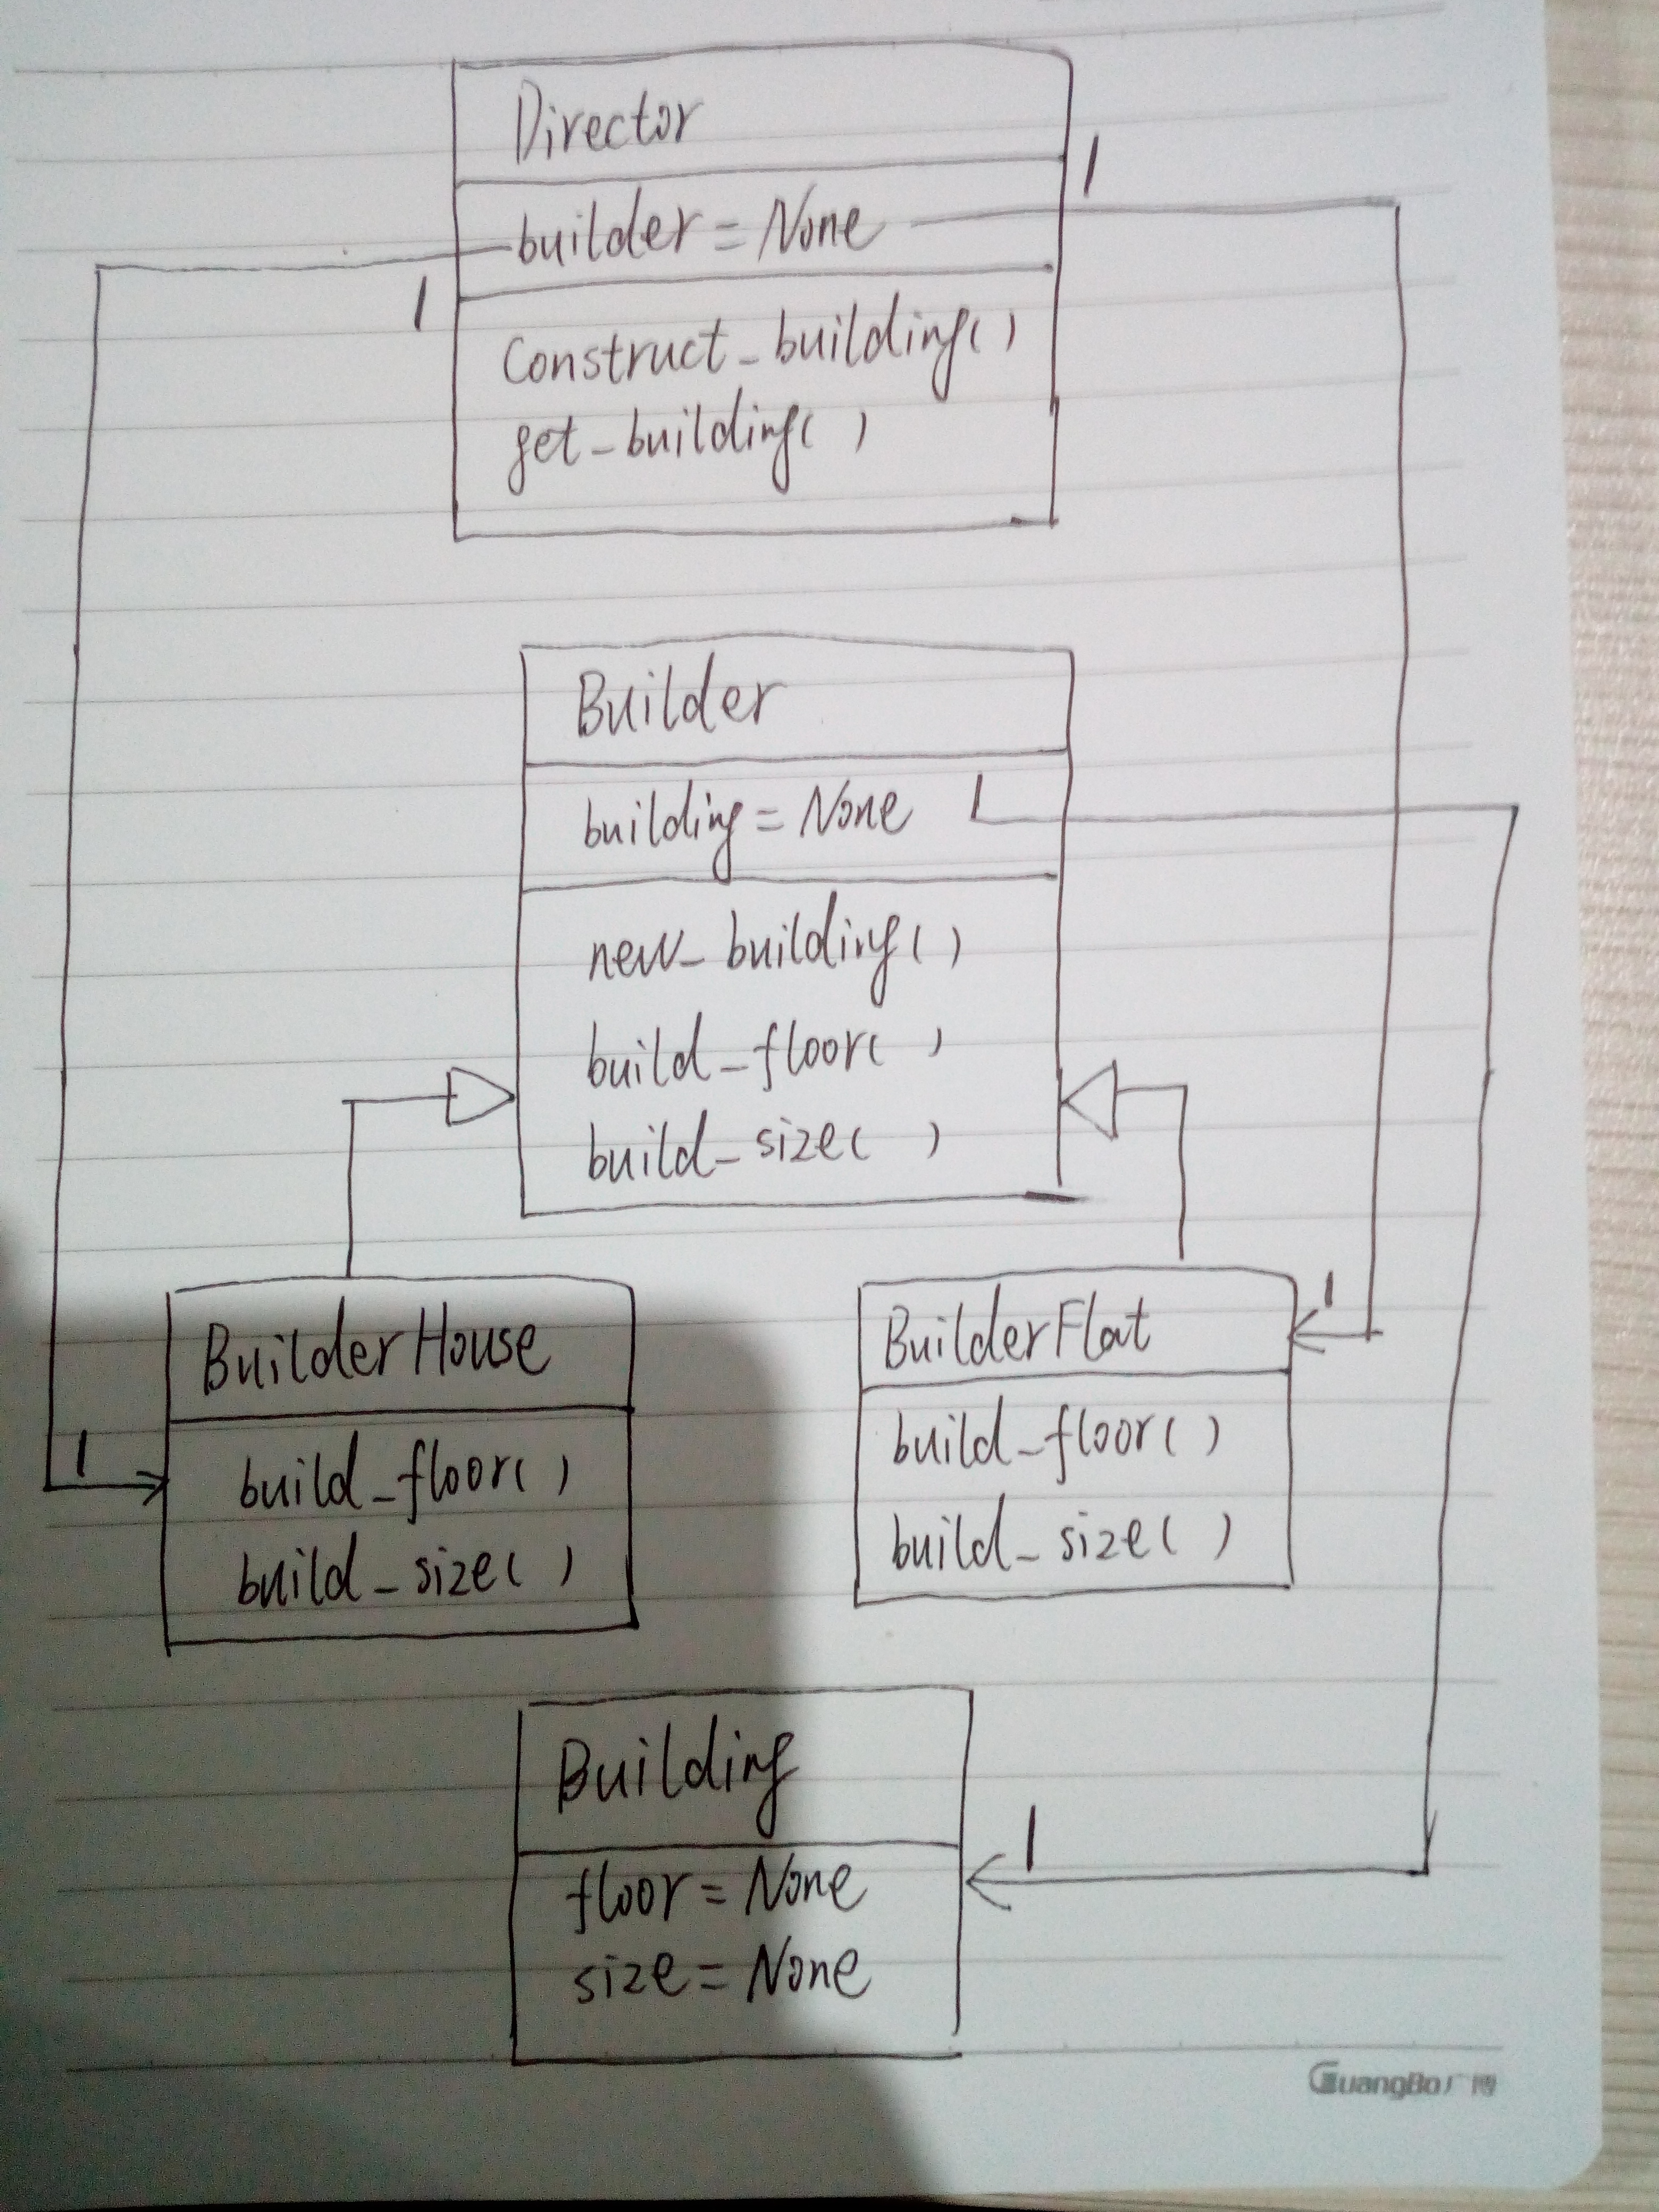 Director
1
builder = None
1
construct_building()
get_building()
Builder
building = None 1
new_building()
build_floor()
build_size()
BuilderHouse
BuilderFlat
1
build_floor()
build_size()
1
build_floor()
build_size()
Building
1
floor = None
size = None
GuangBo广博